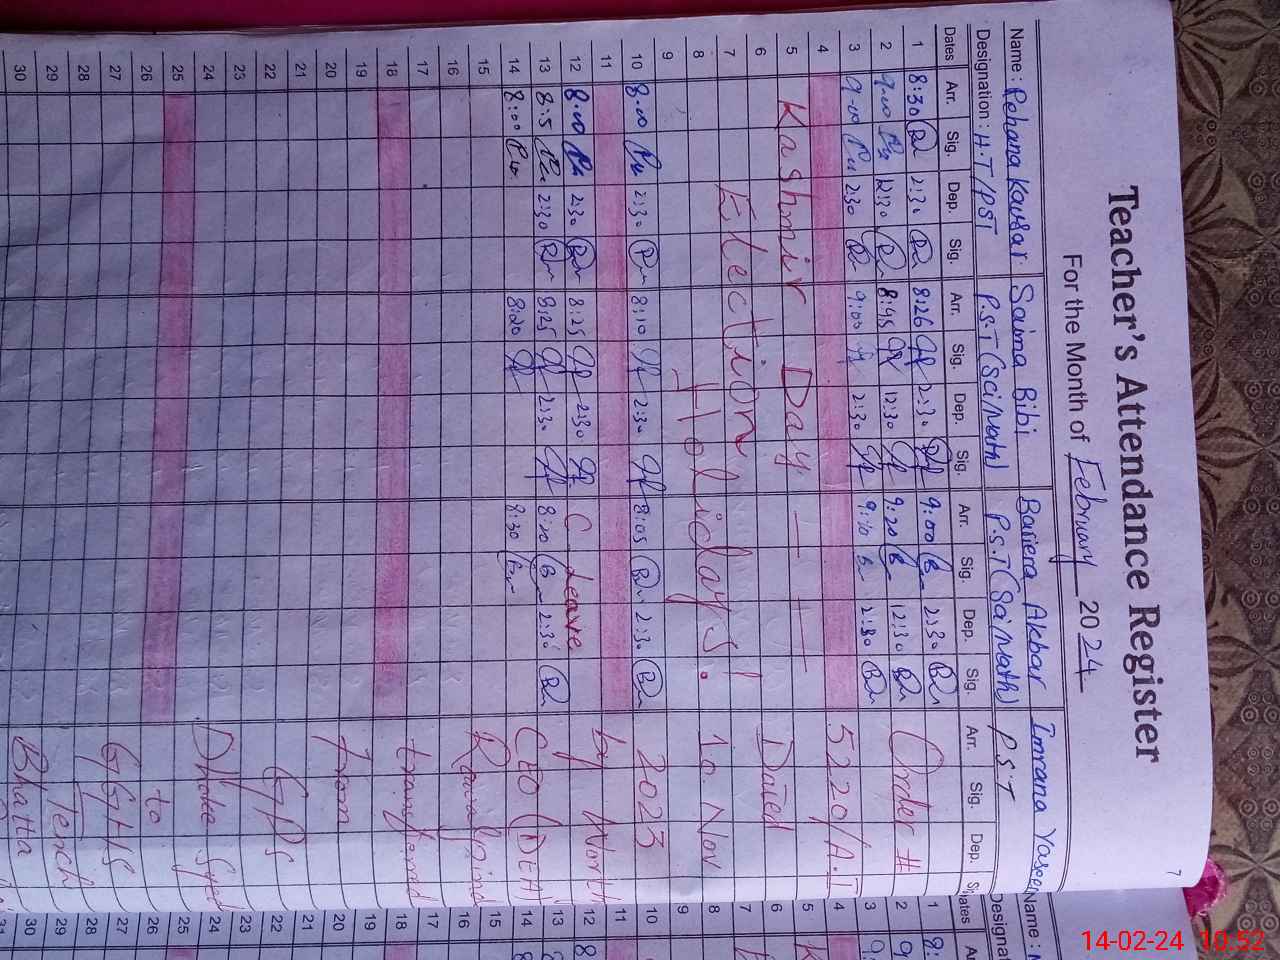 Teacher's Attendance Register
For the Month of February 2024
7
Name : Rehana Kausar Saima Bibi Bariera Akbar Imrana Yaseen
Designation : H.T/PST P.S.T (Sci/Math) P.S.T (Sci/Math) P.S.T
Dates Arr. Sig. Dep. Sig. Arr. Sig. Dep. Sig. Arr. Sig. Dep. Sig. Arr. Sig. Dep.
1 8:30 2:30 8:26 2:30 9:00 2:30
2 9:00 12:30 8:45 12:30 9:20 12:30 Order #
3 9:00 2:30 9:00 2:30 9:10 2:30
4 5220/A.I
5 Kashmir Day
6 Dated
7 Election
8 Holidays. 10. Nov
9
10 8:00 2:30 8:10 2:30 8:05 2:30 2023
11
12 8:00 2:30 8:25 2:30 C. Leave by Worth
13 8:5 2:30 8:25 2:30 8:20 2:30 of
14 8:00 8:20 8:30 CEO (DEA)
15 Rawalpindi
16
17
18 transferred
19
20 From
21
22 GPS
23
24 Dhoke Syed
25
26 to
27 GGHS
28
29 Tench
30 Bhatta
Name :
Designat
Dates
1
2
3
4
5
6
7
8
9
10
11
12
13
14
15
16
17
18
19
20
21
22
23
24
25
26
27
28
29
30
31
14-02-24 10:52